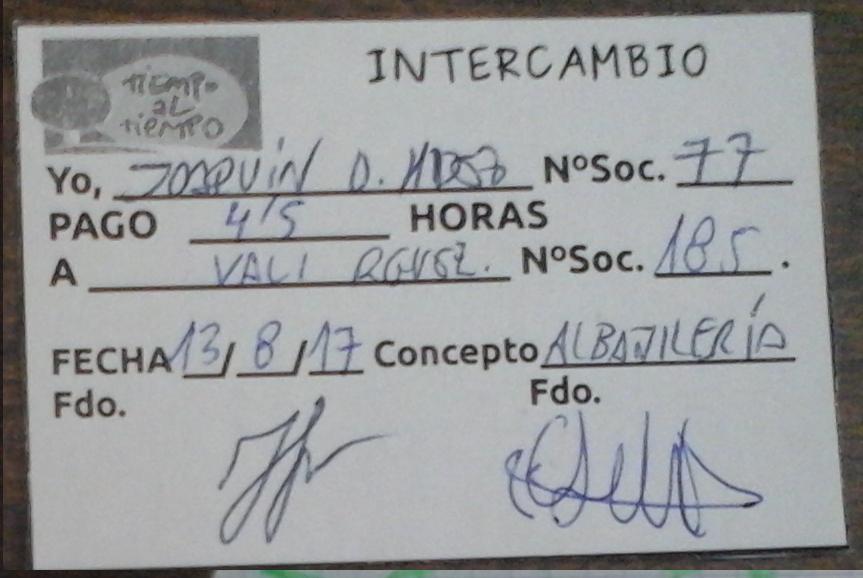 INTERCAMBIO
TIEMPO
AL
TIEMPO
Yo, JOAQUÍN D. NºSoc. 77
PAGO 4'5 HORAS
A VALI RGUEZ. NºSoc. 185.
FECHA 13/8/17 Concepto ALBAÑILERÍA
Fdo. Fdo.